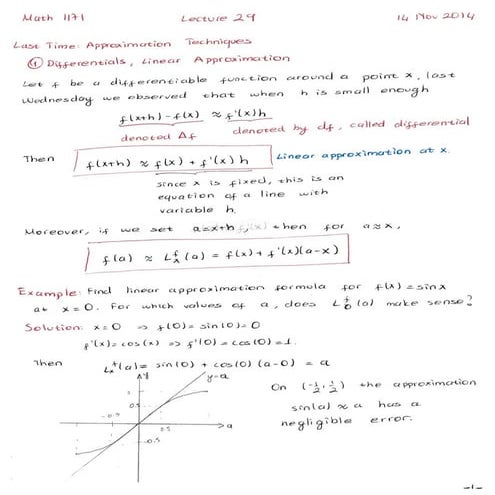 Math 1171 Lecture 29 14 Nov 2014
Last Time: Approximation Techniques
① Differentials, Linear Approximation
Let f be a differentiable function around a point x, last
Wednesday we observed that when h is small enough
f(x+h)-f(x) ≈ f'(x)h
denoted Δf denoted by df, called differential
Then f(x+h) ≈ f(x) + f'(x)h Linear approximation at x.
since x is fixed, this is an
equation of a line with
variable h.
Moreover, if we set a=x+h, then for a≈x,
f(a) ≈ L_x^f(a) = f(x)+f'(x)(a-x)
Example: Find linear approximation formula for f(x)=sinx
at x=0. For which values of a, does L_0^f(a) make sense?
Solution: x=0 ⇒ f(0)=sin(0)=0
f'(x)=cos(x) ⇒ f'(0)=cos(0)=1.
Then L_x^f(a)= sin(0) + cos(0)(a-0) = a
y y=a
0.5
-0.5
0.5
a
-0.5
On (-1/2, 1/2) the approximation
sin(a) ≈ a has a
negligible error.
-1-